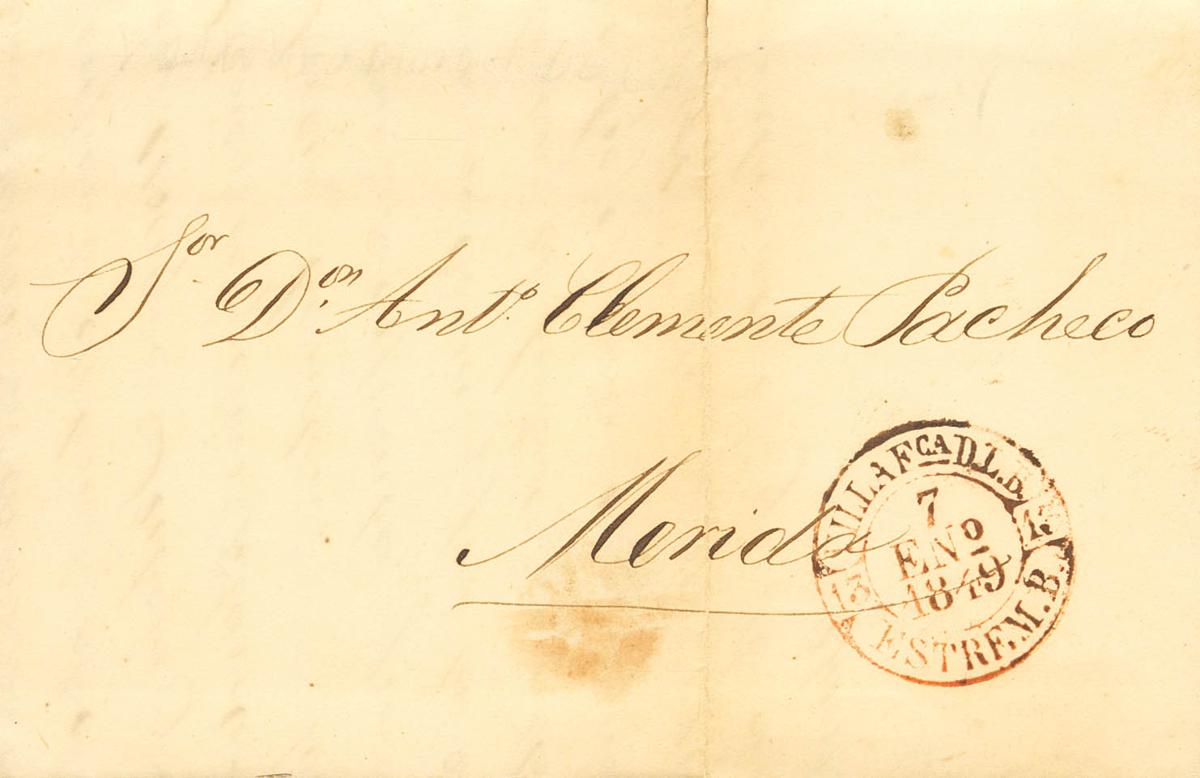 Sor. Don. Anto. Clemente Pacheco
Merida
VILLAFCA D.L.B.
13
7
ENO
1849
13
ESTREM.B.